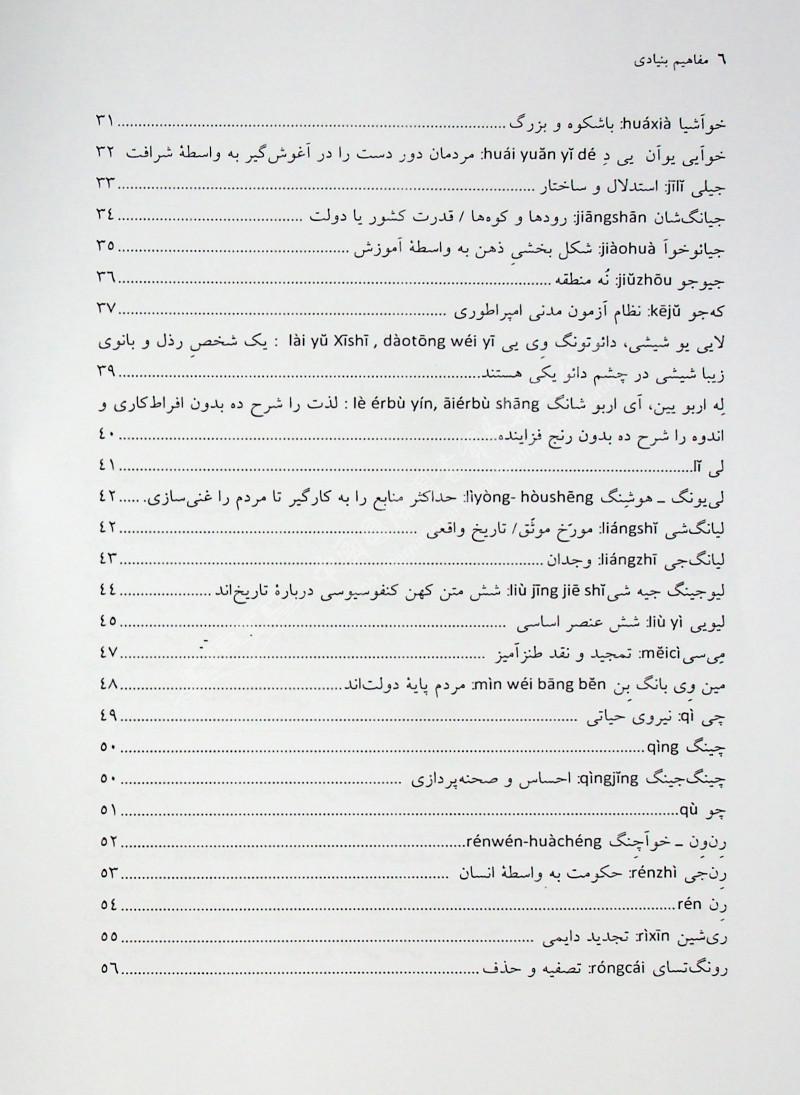 ٦ مفاهیم بنیادی
خوآشیا huáxià: باشکوه و بزرگ ........ ٣١
خوآیی یوآن یی دِ huái yuǎn yǐ dé: مردمان دور دست را در آغوش‌گیر به واسطهٔ شرافت ٣٢
جیلی jīlǐ: استدلال و ساختار ........ ٣٣
جیانگ‌شان jiāngshān: رودها و کوه‌ها / قدرت کشور یا دولت ........ ٣٤
جیائوخوآ jiàohuà: شکل بخشیِ ذهن به واسطهٔ آموزش ........ ٣٥
جیوجو jiǔzhōu: نُه منطقه ........ ٣٦
که‌جو kējǔ: نظام آزمون مدنی امپراطوری ........ ٣٧
لایی یو شیشی، دائوتونگ وِی یی lài yǔ Xīshī , dàotōng wéi yī : یک شخصِ رذل و بانوی
زیبا شیشی در چشم دائو یکی هستند ........ ٣٩
لِه اربو یین، آی اربو شانگ lè érbù yín, āiérbù shāng : لذت را شرح ده بدون افراط‌کاری و
اندوه را شرح ده بدون رنج فزاینده ........ ٤٠
لی lǐ ........ ٤١
لی‌یونگ ـ هوشِنگ lìyòng- hòushēng: حداکثر منابع را به کارگیر تا مردم را غنی‌سازی. ..... ٤٢
لیانگ‌شی liángshǐ: مورّخ موثّق/ تاریخ واقعی ........ ٤٢
لیانگ‌جی liángzhī: وجدان ........ ٤٣
لیوجینگ جیه شی liù jīng jiē shǐ: شش متن کهن کنفوسیوسی دربارهٔ تاریخ‌اند ........ ٤٤
لیویی liù yì: شش عنصر اساسی ........ ٤٥
مِی‌سی měicì: تمجید و نقد طنزآمیز ........ ٤٧
مین وِی بانگ بِن mìn wéi bāng běn: مردم پایهٔ دولت‌اند ........ ٤٨
چی qì: نیروی حیاتی ........ ٤٩
چینگ qìng ........ ٥٠
چینگ‌جینگ qìngjǐng: احساس و صحنه‌پردازی ........ ٥٠
چو qù ........ ٥١
رِن‌وِن ـ خوآچِنگ rénwén-huàchéng ........ ٥٢
رِن‌جی rénzhì: حکومت به واسطهٔ انسان ........ ٥٣
رِن rén ........ ٥٤
ری‌شین rìxīn: تجدید دایمی ........ ٥٥
رونگ‌تسای róngcái: تصفیه و حذف ........ ٥٦